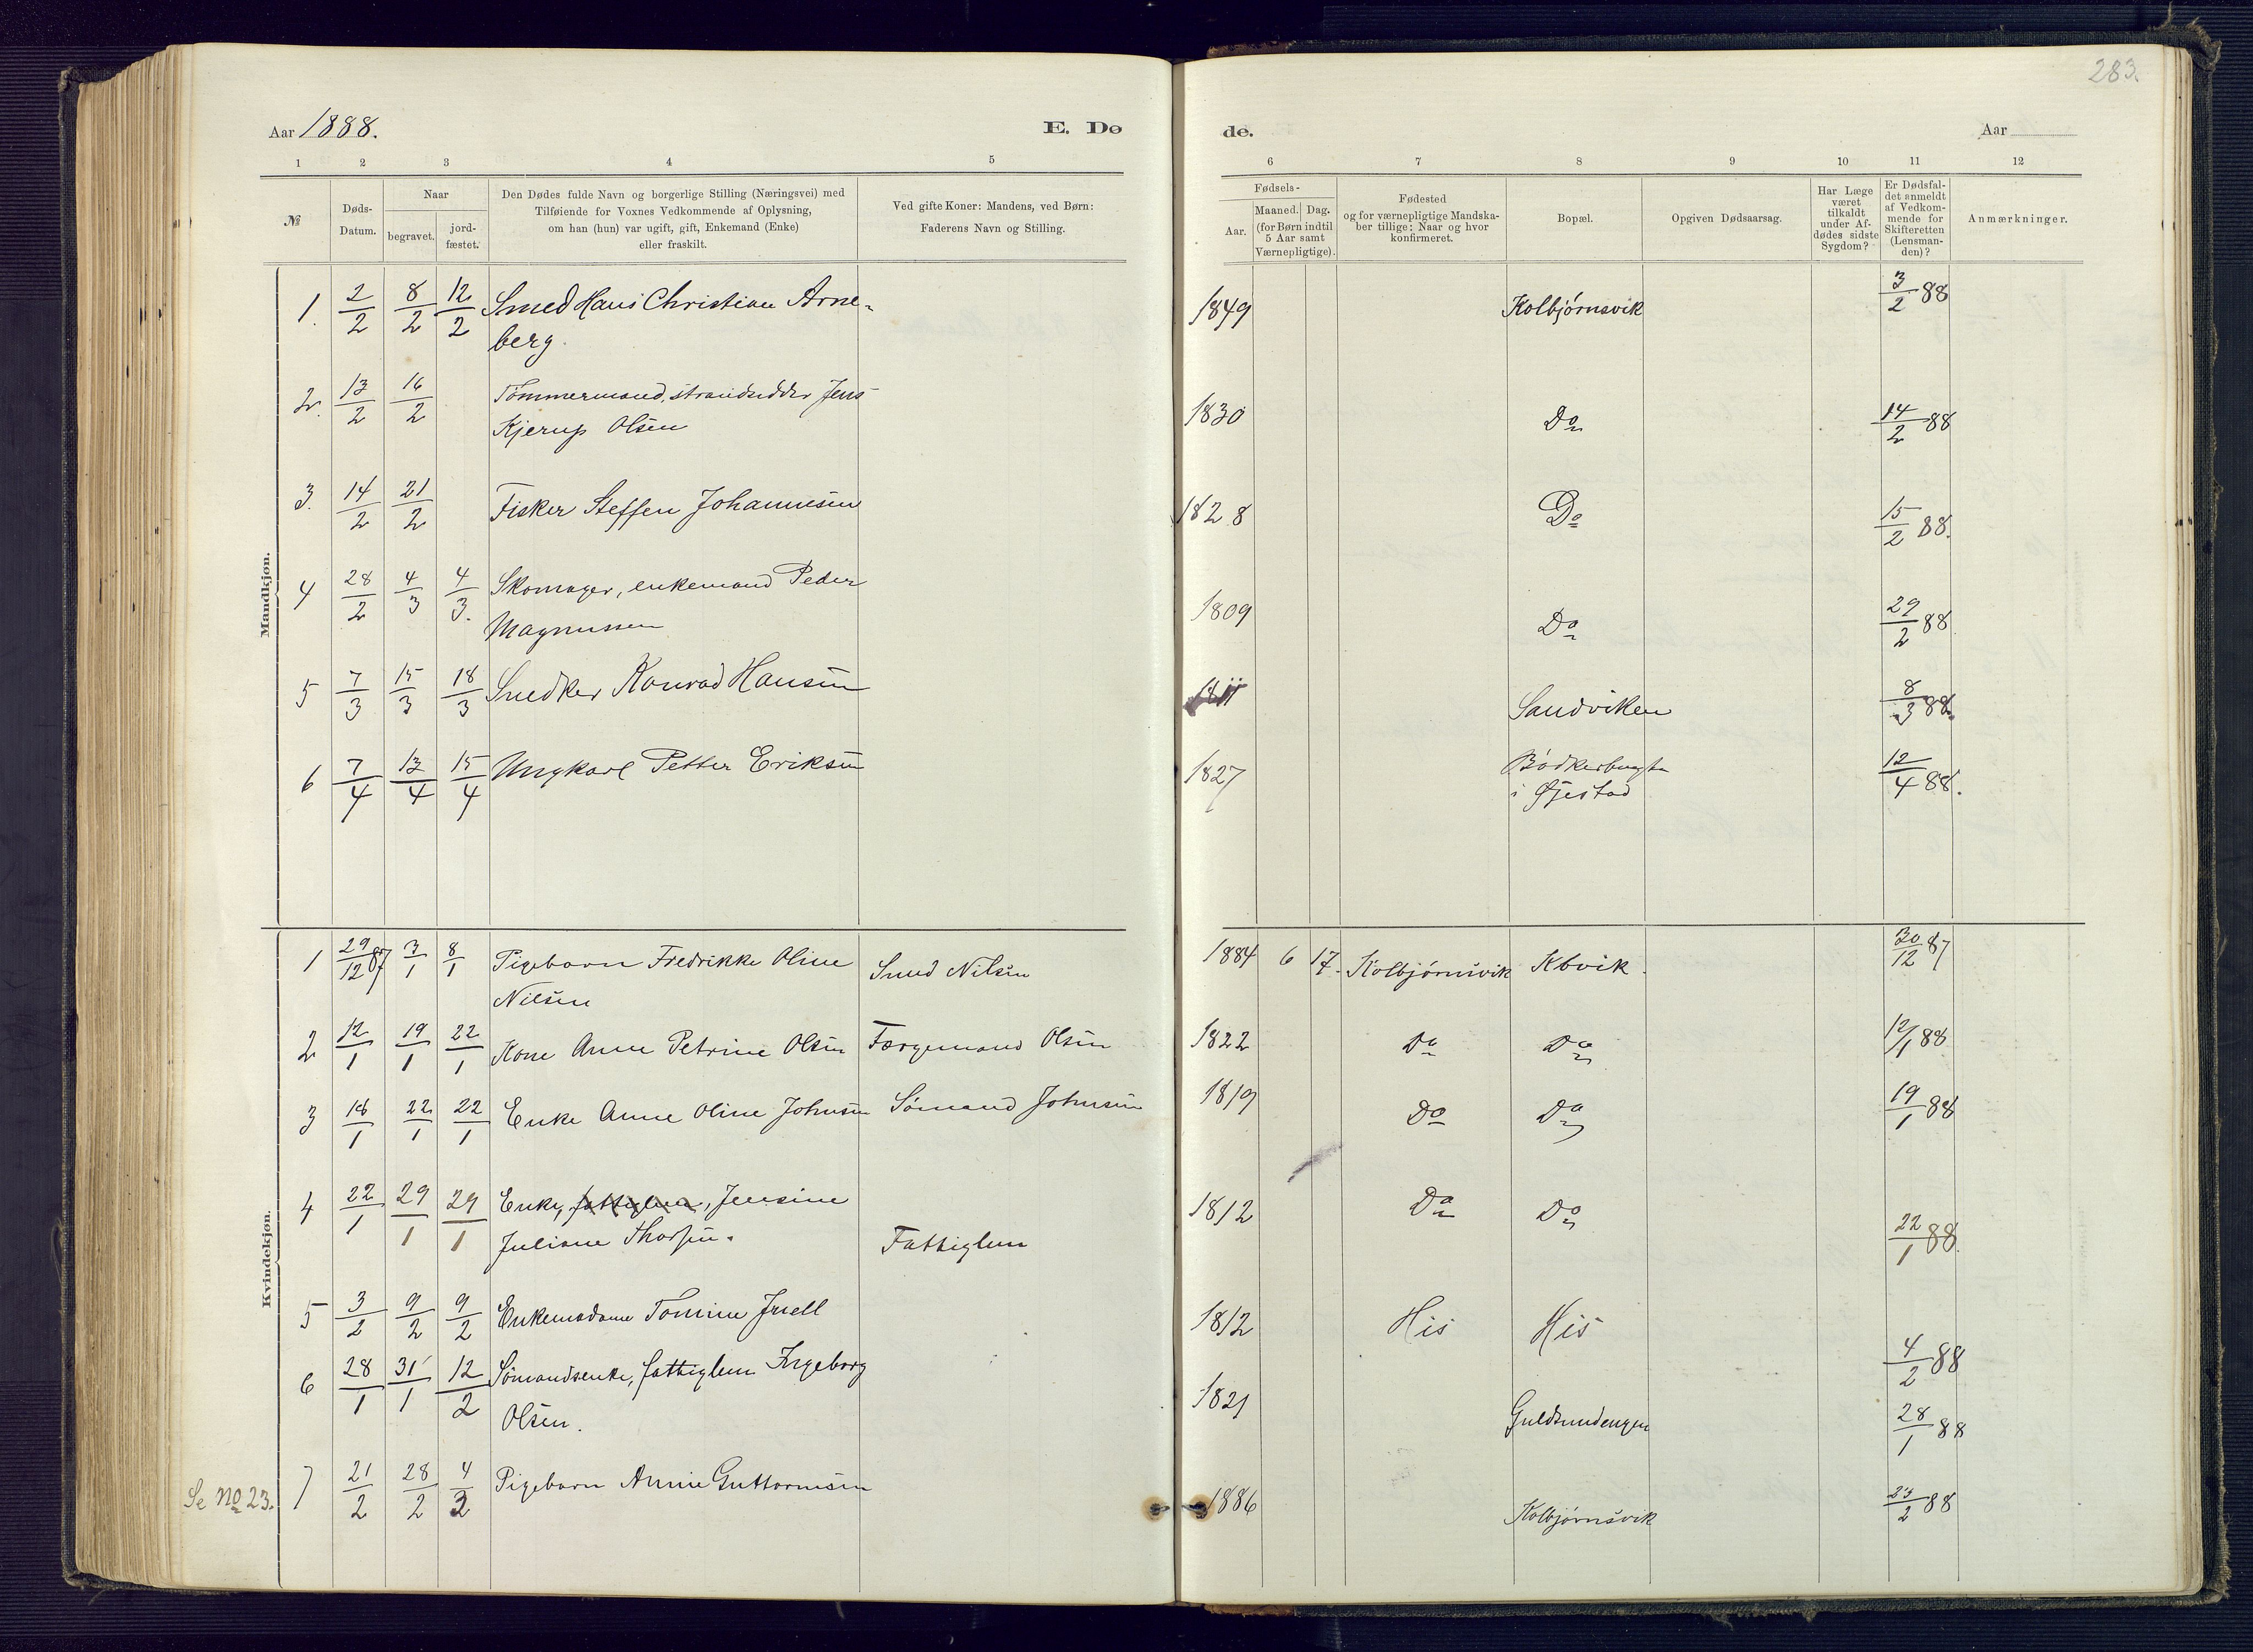 283.
Aar 1888.
E. Dø
de.
Aar
1 2 3 4 5
6 7 8 9 10 11 12
№
Døds-
Datum.
Naar
begravet.
jord-
fæstet.
Den Dødes fulde Navn og borgerlige Stilling (Næringsvei) med
Tilføiende for Voxnes Vedkommende af Oplysning,
om han (hun) var ugift, gift, Enkemand (Enke)
eller fraskilt.
Ved gifte Koner: Mandens, ved Børn:
Faderens Navn og Stilling.
Fødsels-
Aar.
Maaned. Dag.
(for Børn indtil
5 Aar samt
Værnepligtige).
Fødested
og for værnepligtige Mandska-
ber tillige: Naar og hvor
konfirmeret.
Bopæl.
Opgiven Dødsaarsag.
Har Læge
været
tilkaldt
under Af-
dødes sidste
Sygdom?
Er Dødsfal-
det anmeldt
af Vedkom-
mende for
Skifteretten
(Lensman-
den)?
Anmærkninger.
Mandkjøn.
1. 2/2 8/2 12/2 Smed Hans Christian Arne-
berg.
1849 Kolbjørnsvik 3/2 88
2. 13/2 16/2 Tømmermand, strandsidder Jens
Kjerup Olsen
1830 Do 14/2 88
3. 14/2 21/2 Fisker Steffen Johannesen
1828 Do 15/2 88.
4 28/2 4/3 4/3. Skomager, enkemand Peder
Magnussen
1809 Do 29/2 88
5 7/3 15/3 18/3 Snedker Konrad Hansen
Sandviken 8/3 88.
6 7/4 13/4 15/4 Ungkarl Petter Eriksen
1827 Bødkerbugta
i Øjestad
12/4 88.
Kvindekjøn.
1 29/12 87 3/1 8/1 Pigebarn Fredrikke Oline
Nilsen
Smed Nilsen
1884 6 17. Kolbjørnsvik Kbvik. 30/12 87
2 12/1 19/1 22/1 Kone Anne Petrine Olsen Færgemand Olsen
1822 Do Do 12/1 88
3 18/1 22/1 22/1 Enke Anne Oline Johnsen Sømand Johnsen
1819 Do Do 19/1 88
4 22/1 29/1 29/1 Enke, fattiglem, Jensine
Juliane Thorsen.
Fattiglem
1812 Do Do 22/1 88.
5 3/2 9/2 9/2 Enkemadame Tomine Juell
1812 His His 4/2 88
6 28/1 31/1 12/2 Sømandsenke, fattiglem Ingeborg
Olsen.
1821 Guldsmedengen 28/1 88
Se No 23. 7 21/2 28/2 4/3 Pigebarn Annie Guttormsen
1886 Kolbjørnsvik 23/2 88